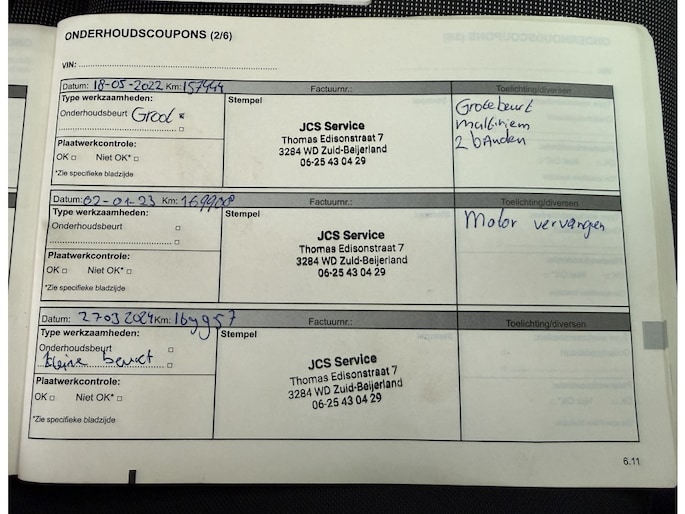 ONDERHOUDSCOUPONS (2/6)
VIN:
Datum: 18-05-2022 Km: 157444 Factuurnr.: Toelichting/diversen
Type werkzaamheden:
Onderhoudsbeurt Groot
Plaatwerkcontrole:
OK □ Niet OK* □
*Zie specifieke bladzijde
Stempel
JCS Service
Thomas Edisonstraat 7
3284 WD Zuid-Beijerland
06-25 43 04 29
Grote beurt
multiriem
2 banden
Datum: 02-01-23 Km: 169900 Factuurnr.: Toelichting/diversen
Type werkzaamheden:
Onderhoudsbeurt □
Plaatwerkcontrole:
OK □ Niet OK* □
*Zie specifieke bladzijde
Stempel
JCS Service
Thomas Edisonstraat 7
3284 WD Zuid-Beijerland
06-25 43 04 29
Motor vervangen
Datum: 27 03 2024 Km: Factuurnr.: Toelichting/diversen
Type werkzaamheden:
Onderhoudsbeurt □
kleine beurt □
Plaatwerkcontrole:
OK □ Niet OK* □
*Zie specifieke bladzijde
Stempel
JCS Service
Thomas Edisonstraat 7
3284 WD Zuid-Beijerland
06-25 43 04 29
6.11